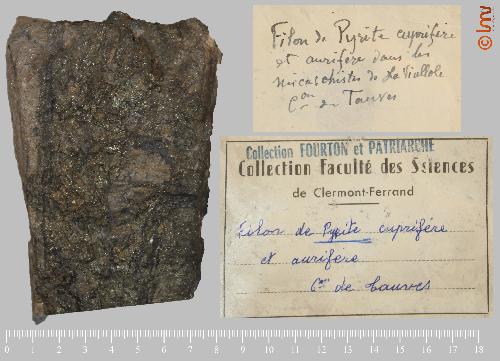 Filon de Pyrite cuprifère
et aurifère dans les
micaschistes de La Viallole
Con de Tauves
Collection FOURTON et PATRIARCHE
Collection Faculté des Sciences
de Clermont-Ferrand
Filon de Pyrite cuprifère
et aurifère
Con de Tauves
© lmv
0 1 2 3 4 5 6 7 8 9 10 11 12 13 14 15 16 17 18